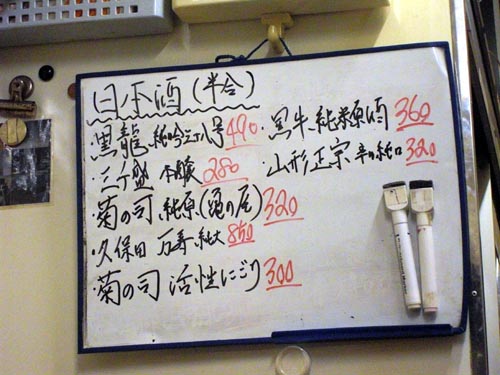 日本酒(半合)
・黒龍 純吟三十八号 490
・三千盛 本醸 280
・菊の司 純原(亀の尾) 320
・久保田 万寿 純大 850
・菊の司 活性にごり 300
・黒牛 純米原酒 360
・山形正宗 辛口純 320